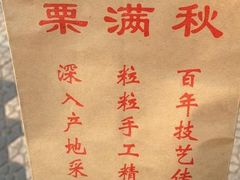 栗满秋
百年技艺传
粒粒手工精
深入产地采